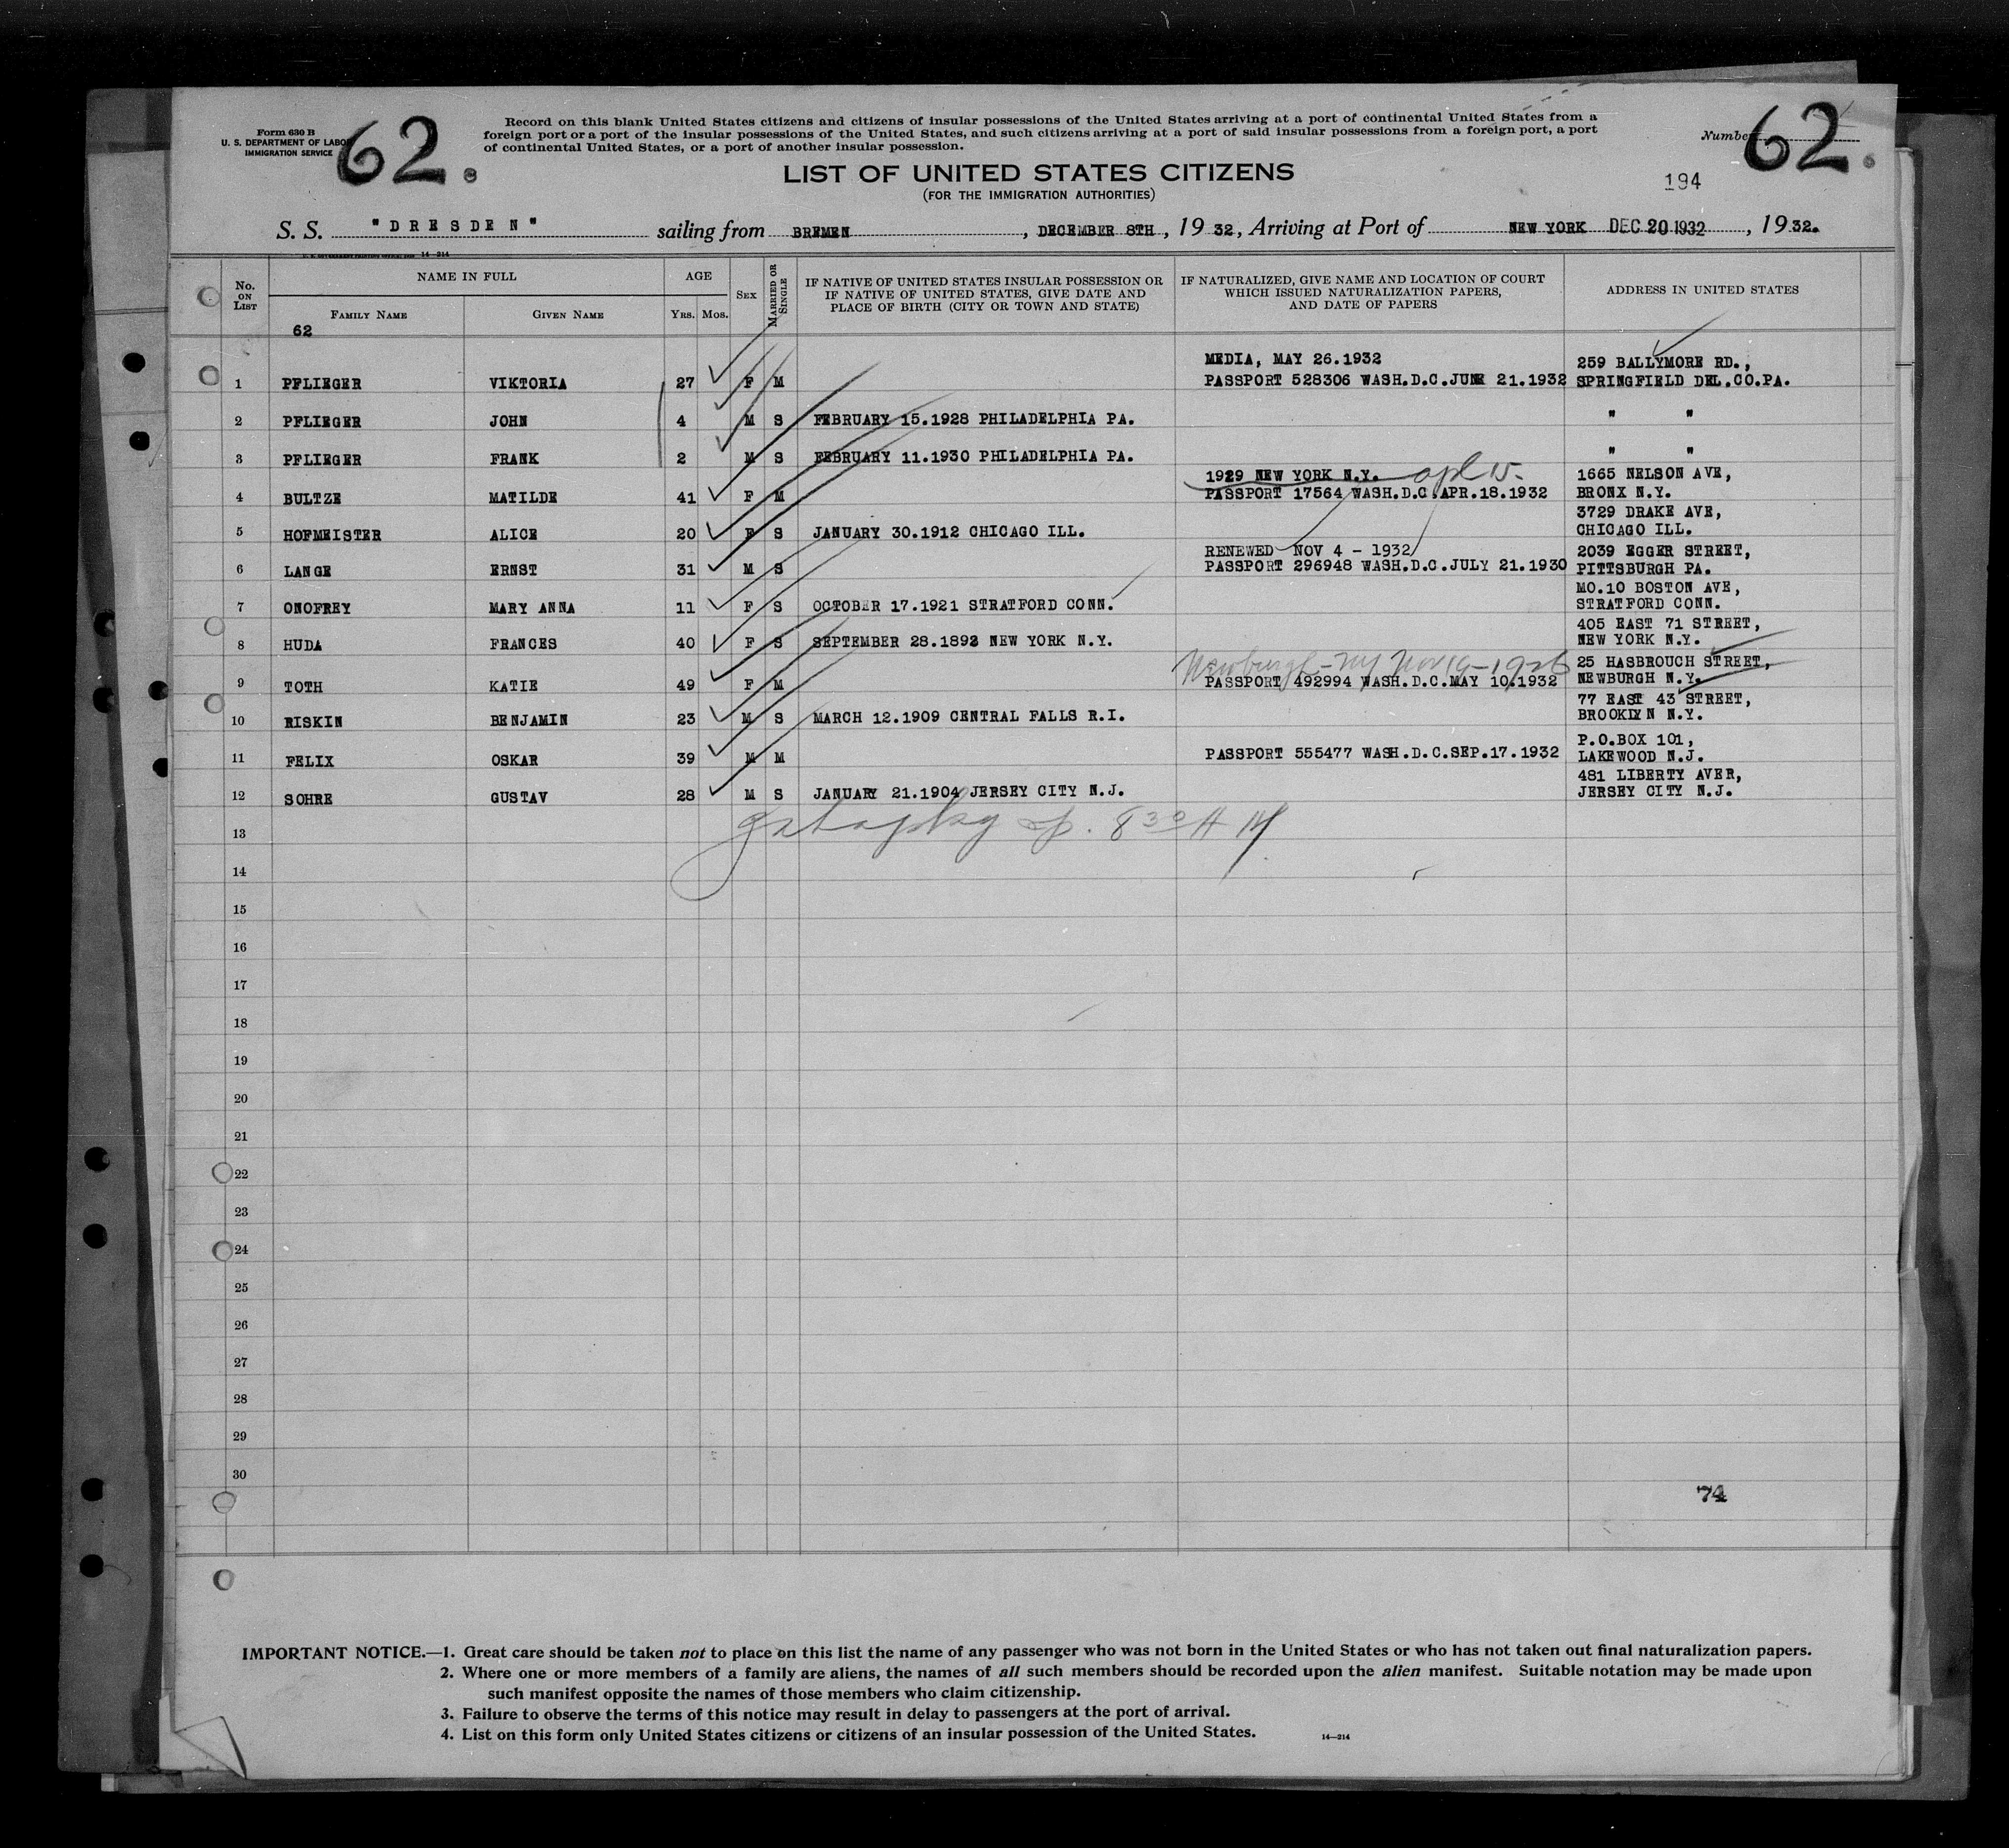 Form 630 B
U. S. DEPARTMENT OF LABOR
IMMIGRATION SERVICE
62.
Record on this blank United States citizens and citizens of insular possessions of the United States arriving at a port of continental United States from a
foreign port or a port of the insular possessions of the United States, and such citizens arriving at a port of said insular possessions from a foreign port, a port
of continental United States, or a port of another insular possession.
Number 62.
LIST OF UNITED STATES CITIZENS
(FOR THE IMMIGRATION AUTHORITIES)
194
S. S. "DRESDEN" sailing from BREMEN, DECEMBER 8TH, 1932, Arriving at Port of NEW YORK DEC 20 1932, 1932.
14-214
No. ON LIST NAME IN FULL FAMILY NAME GIVEN NAME AGE YRS. MOS. SEX MARRIED OR SINGLE
IF NATIVE OF UNITED STATES INSULAR POSSESSION OR
IF NATIVE OF UNITED STATES, GIVE DATE AND
PLACE OF BIRTH (CITY OR TOWN AND STATE)
IF NATURALIZED, GIVE NAME AND LOCATION OF COURT
WHICH ISSUED NATURALIZATION PAPERS,
AND DATE OF PAPERS
ADDRESS IN UNITED STATES
62
MEDIA, MAY 26.1932 259 BALLYMORE RD.,
1 PFLIEGER VIKTORIA 27 F M PASSPORT 528306 WASH.D.C.JUNE 21.1932 SPRINGFIELD DEL.CO.PA.
2 PFLIEGER JOHN 4 M S FEBRUARY 15.1928 PHILADELPHIA PA. " "
3 PFLIEGER FRANK 2 M S FEBRUARY 11.1930 PHILADELPHIA PA. " "
1929 NEW YORK N.Y. apl 15- 1665 NELSON AVE,
4 BULTZE MATILDE 41 F M PASSPORT 17564 WASH.D.C.APR.18.1932 BRONX N.Y.
3729 DRAKE AVE,
5 HOFMEISTER ALICE 20 F S JANUARY 30.1912 CHICAGO ILL. CHICAGO ILL.
RENEWED NOV 4 - 1932 2039 EGGER STREET,
6 LANGE ERNST 31 M S PASSPORT 296948 WASH.D.C.JULY 21.1930 PITTSBURGH PA.
MO.10 BOSTON AVE,
7 ONOFREY MARY ANNA 11 F S OCTOBER 17.1921 STRATFORD CONN. STRATFORD CONN.
405 EAST 71 STREET,
8 HUDA FRANCES 40 F S SEPTEMBER 28.1892 NEW YORK N.Y. NEW YORK N.Y.
Newburgh-NY Nov 19-1926 25 HASBROUCH STREET,
9 TOTH KATIE 49 F M PASSPORT 492994 WASH.D.C.MAY 10.1932 NEWBURGH N.Y.
77 EAST 43 STREET,
10 RISKIN BENJAMIN 23 M S MARCH 12.1909 CENTRAL FALLS R.I. BROOKLYN N.Y.
P.O.BOX 101,
11 FELIX OSKAR 39 M M PASSPORT 555477 WASH.D.C.SEP.17.1932 LAKEWOOD N.J.
481 LIBERTY AVER,
12 SOHRE GUSTAV 28 M S JANUARY 21.1904 JERSEY CITY N.J. JERSEY CITY N.J.
13
14
15
16
17
18
19
20
21
22
23
24
25
26
27
28
29
30
74
IMPORTANT NOTICE.—1. Great care should be taken not to place on this list the name of any passenger who was not born in the United States or who has not taken out final naturalization papers.
2. Where one or more members of a family are aliens, the names of all such members should be recorded upon the alien manifest. Suitable notation may be made upon
such manifest opposite the names of those members who claim citizenship.
3. Failure to observe the terms of this notice may result in delay to passengers at the port of arrival.
4. List on this form only United States citizens or citizens of an insular possession of the United States.
14—214